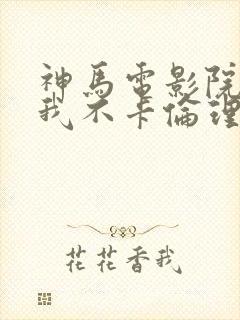 神馬電影院
我不卡倫理
花花香我